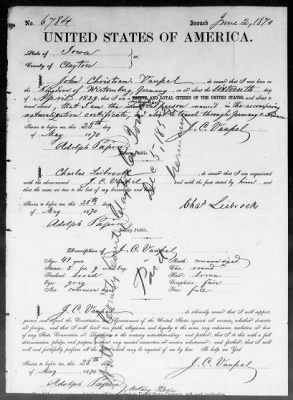 No. 6784 Issued June 2, 1870
UNITED STATES OF AMERICA.
State of Iowa
County of Clayton
I, John Christian Vaupel, do swear that I was born in the
Kingdom of Germany on or about the sixteenth day
of April 1829, that I am a and loyal citizen of the United
States, and am the person named in the accompanying
naturalization certificate, about to travel through Germany
Sworn to before me this 28th day
of May 1870 J. C. Vaupel
Adolph Papin
I, Charles Leibrock do swear that I am acquainted
with J. C. Vaupel and with the facts stated by him and
that the same are true to the best of my knowledge and
Sworn to before me this 28th day
of May 1870 Chas Leibrock
Adolph Papin
Description of J. C. Vaupel
Age: 41 years Mouth:
Stature: 5 ft 9 Chin: round
Forehead: broad Hair: brown
Eyes: grey Complexion: fair
Nose: common sized Face: full
I, J. C. Vaupel do solemnly swear that I will support
protect and defend the Constitution and Government of the United States against all enemies, whether domestic
or foreign, and that I will bear true faith, allegiance, and loyalty to the same, any ordinance, resolution or law
of any State, Convention or Legislature to the contrary notwithstanding; and further, that I do this with a full
determination, pledge, and purpose, without any mental reservation or evasion whatsoever; and further, that I
will well and faithfully perform all the duties which may be required of me by law. So help me God.
Sworn to before me this 28th day
of May 1870 J. C. Vaupel
Adolph Papin
Notary
Clayton Co. Iowa
Dec 5, 185